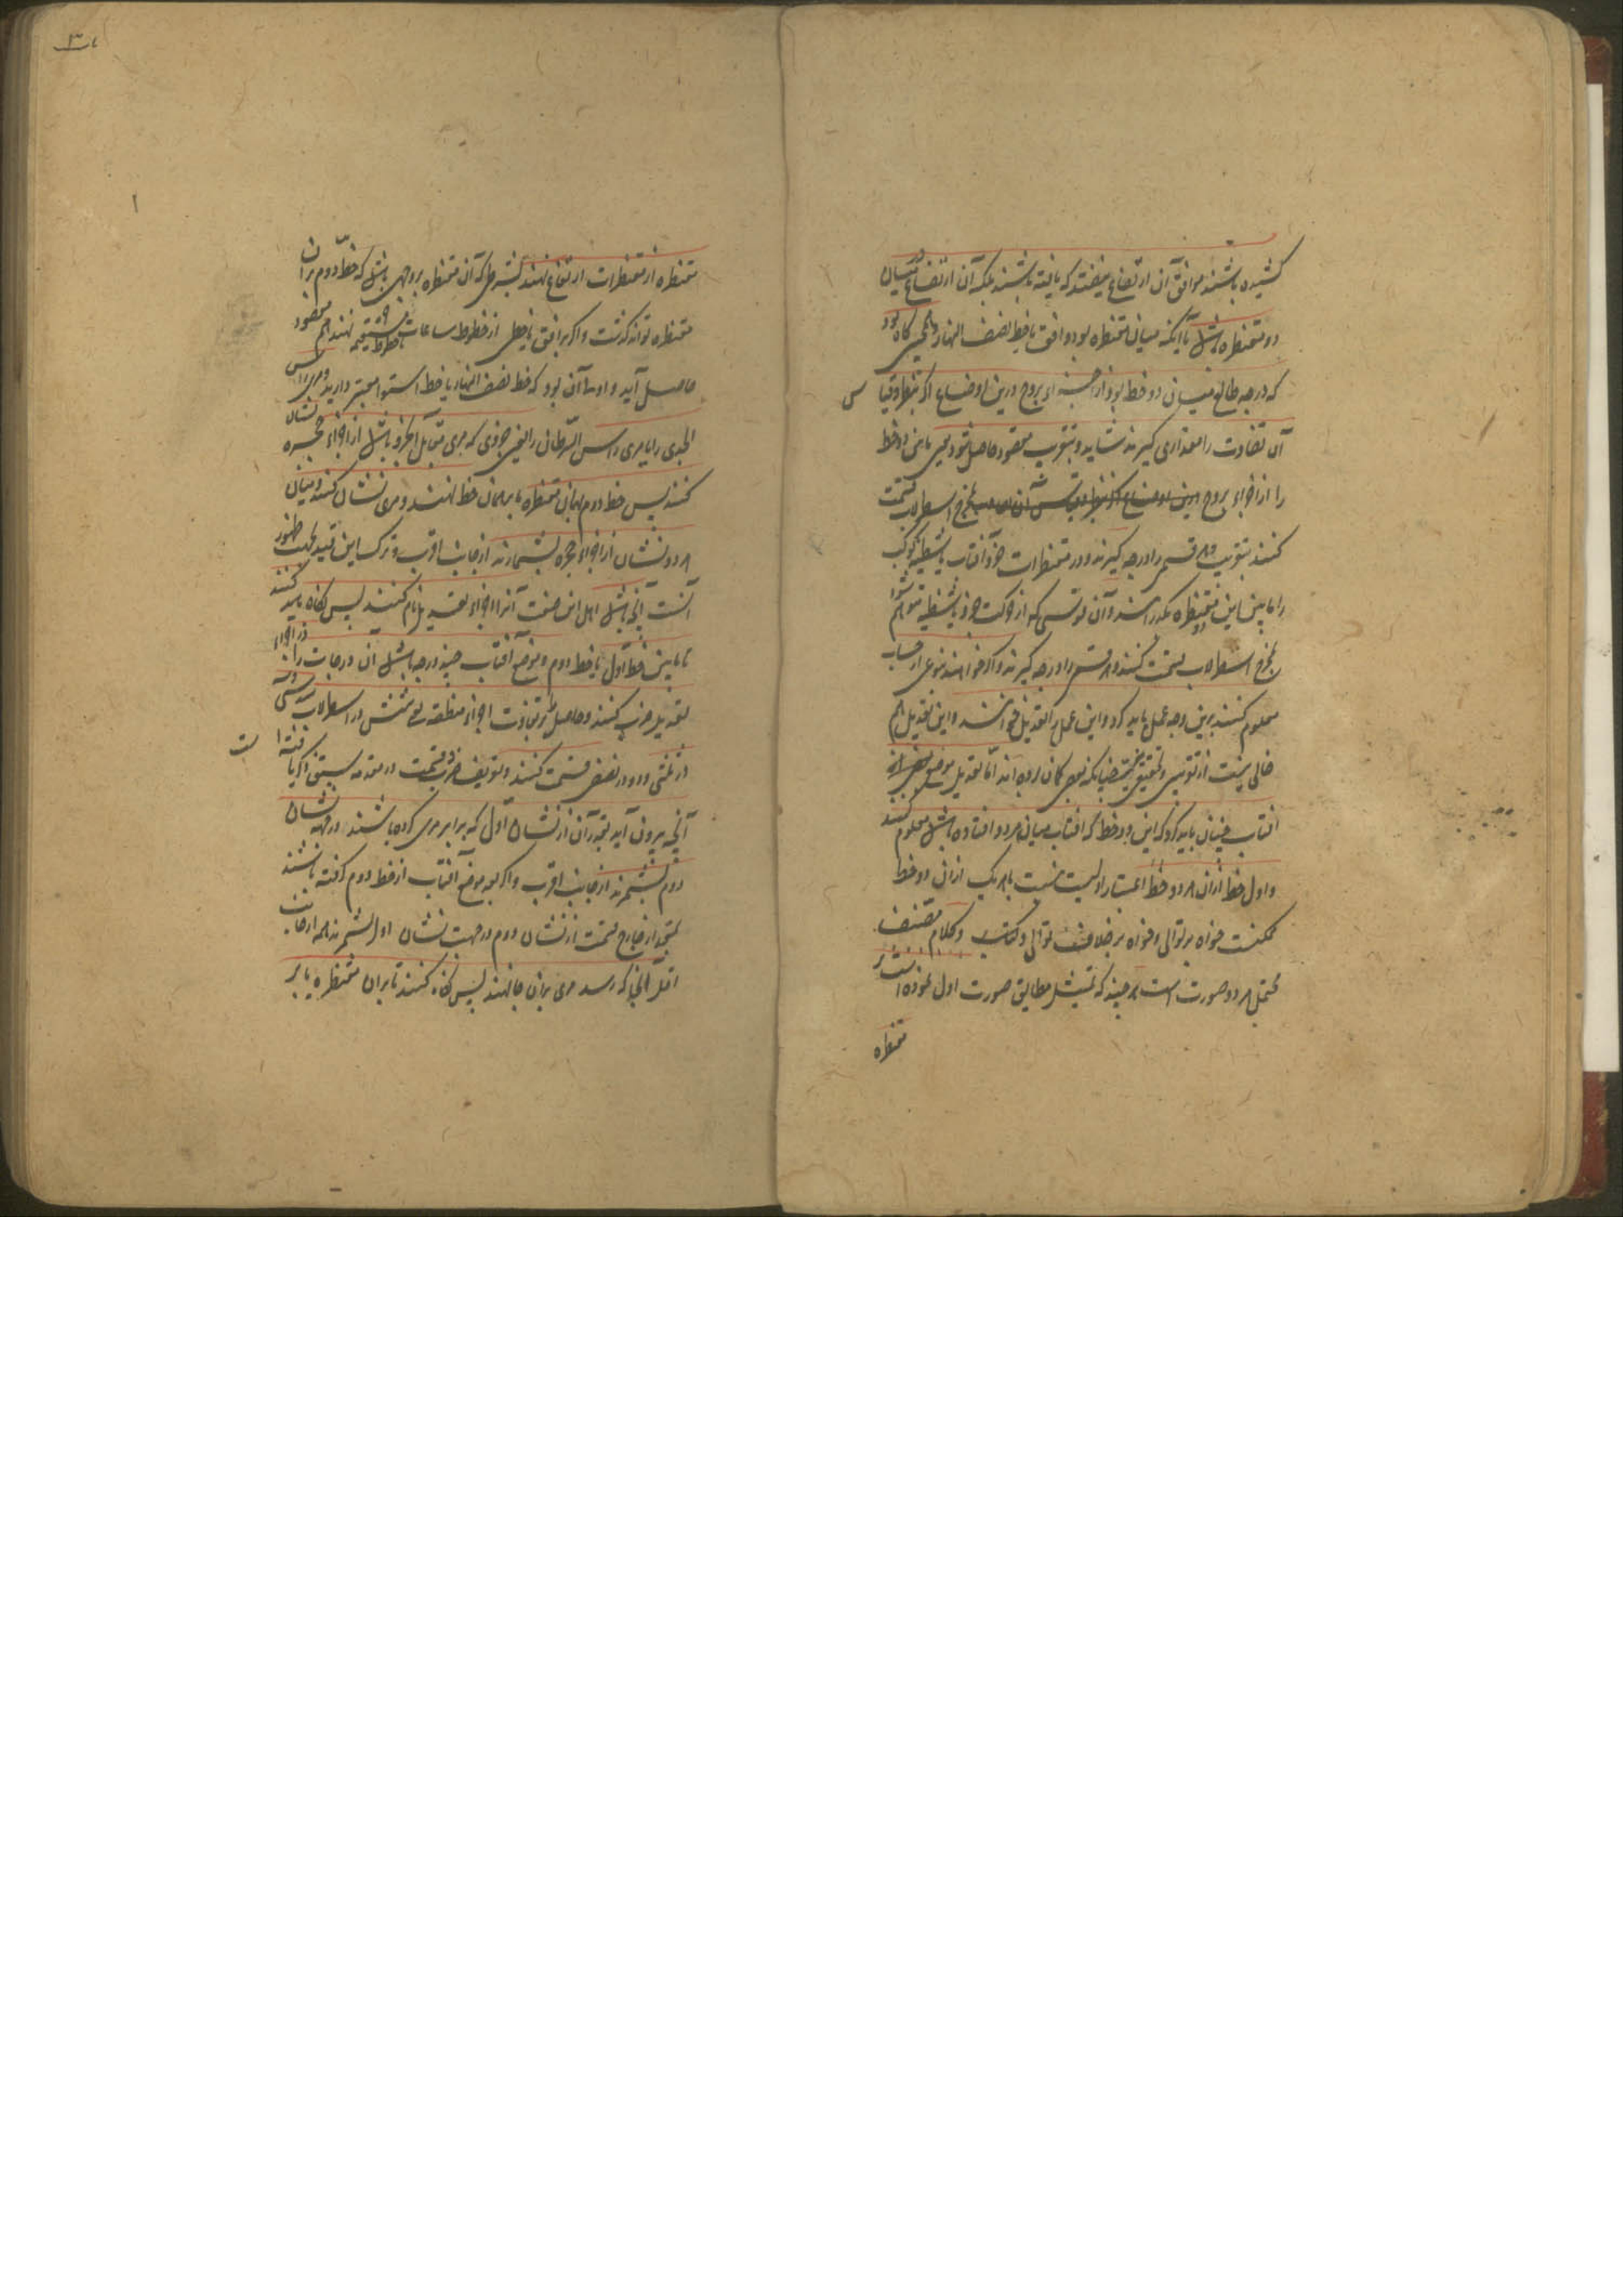 کشیده باشند موافق آن ارتفاع نیفتد که یافته باشند بلکه آن ارتفاع در میان
دو مقنطره باشد یا آنکه میان مقنطره بود و افق یا خط نصف النهار و همچنین گاه بود
که درجه طالع میان دو خط بود از اجزاء بروج درین اوضاع اگر بنظر و قیاس
آن تفاوت را مقداری گیرند شاید و بتقریب مقصود حاصل شود یعنی مابین دو خط
را از اجزاء بروج بمخرج اسطرلاب قسمت
کنند بتقریب و هر قسم را درجه گیرند و در مقنطرات جزو آفتاب یا شظیه کوکب
را مابین این دو مقنطره بگذرانند و آن قوسی که از حرکت جزو یا شظیه متوهم شود
بمخرج اسطرلاب قسمت کنند و هر قسم را درجه گیرند و اگر خواهند بنوعی از حساب
معلوم کنند برین وجه عمل باید کرد و این عمل را تعدیل خوانند و این تعدیل هم
خالی نیست از تقریبی و تحقیقی نیست چنانکه بعضی گمان برده اند اما تعدیل موضع
آفتاب چنان باید کرد که این دو خط که آفتاب میان هر دو افتاده باشد معلوم کنند
و اول خط از آن هر دو خط اعتبار اولیت نسبت با هر یک از آن دو خط
ممکنست خواه بر توالی و خواه بر خلاف توالی و کلام مصنف
محتمل هر دو صورت است هر چند که تمثیل مطابق صورت اول نموده است
مقنطره
مقنطره از مقنطرات ارتفاع نهند بشرطی که آن مقنطره بر وجهی باشد که خط دوم بر آن
مقنطره تواند گذشت و اگر بر افق یا خطی از خطوط ساعات یا خطوط مستقیمه نهند هم مقصود
حاصل آید و اوسط آن بود که خط نصف النهار یا خط استوا معتبر دارند و مری راس
الجدی را یا مری راس السرطان را یعنی جزوی که مری مقابل آن جزو باشد از اجزاء حجره نشان
کنند پس خط دوم بهمان مقنطره یا بر همان خط نهند و مری نشان کنند و میان
هر دو نشان از اجزاء حجره بشمارند از جانب اقرب و ترک این قید بجهت ظهور
آنست آنچه باشد اهل این صنعت آنرا اجزاء تعدیل نام کنند پس نگاه باید کنند
تا مابین خط اول یا خط دوم و موضع آفتاب چند درجه باشد آن درجات را در اجزاء
تعدیل ضرب کنند و حاصل را بر تفاوت اجزاء منطقه یعنی شش در اسطرلاب سدسی و سه
در ثلثی و دو در نصفی قسمت کنند و تعریف ضرب و قسمت در مقدمه سبق ذکر یافته است
آنچه بیرون آید بقدر آن از نشان اول که برابر مری کرده باشند در جهة نشان
دوم بشمرند از جانب اقرب و اگر بعد موضع آفتاب از خط دوم گرفته باشند
بقدر خارج قسمت از نشان دوم در جهت نشان اول بشمرند هم از جانب
اقل آنجا که رسد مری بر آن جا نهند پس نگاه کنند تا بر آن مقنطره یا بر